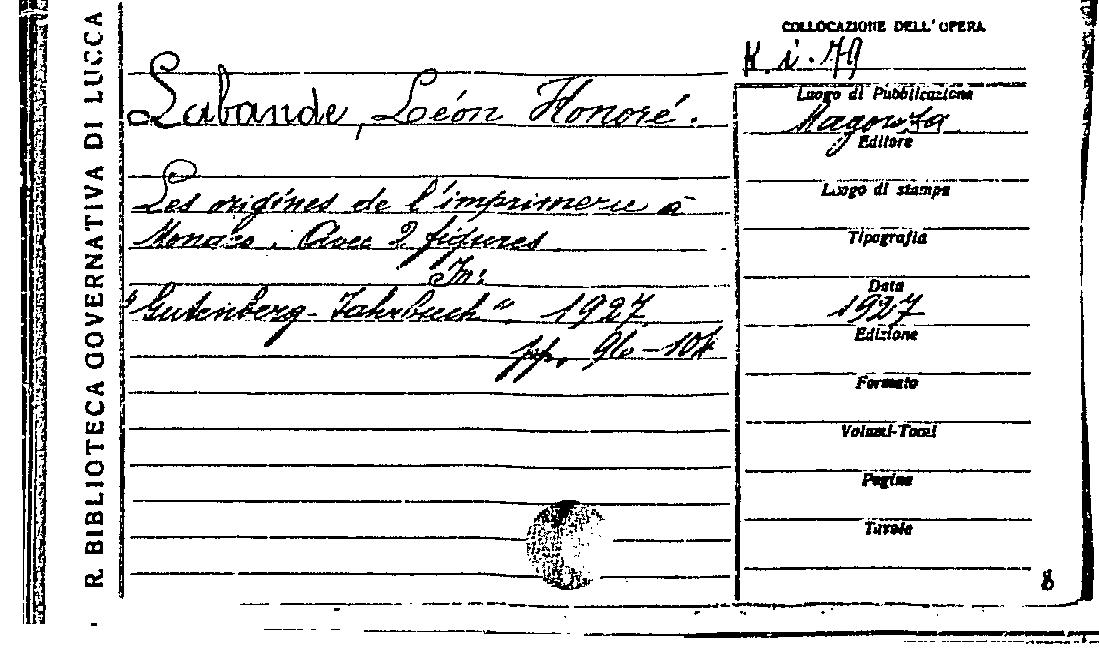 R. BIBLIOTECA GOVERNATIVA DI LUCCA
COLLOCAZIONE DELL'OPERA
K. i. 79
Labande, Léon Honoré.
Les origines de l'imprimerie à
Monaco. Avec 2 figures
In:
"Gutenberg-Jahrbuch" 1927
pp. 96-104
Luogo di Pubblicazione
Magonza
Editore
Luogo di stampa
Tipografia
Data
1927
Edizione
Formato
Volumi-Tomi
Pagine
Tavole
8